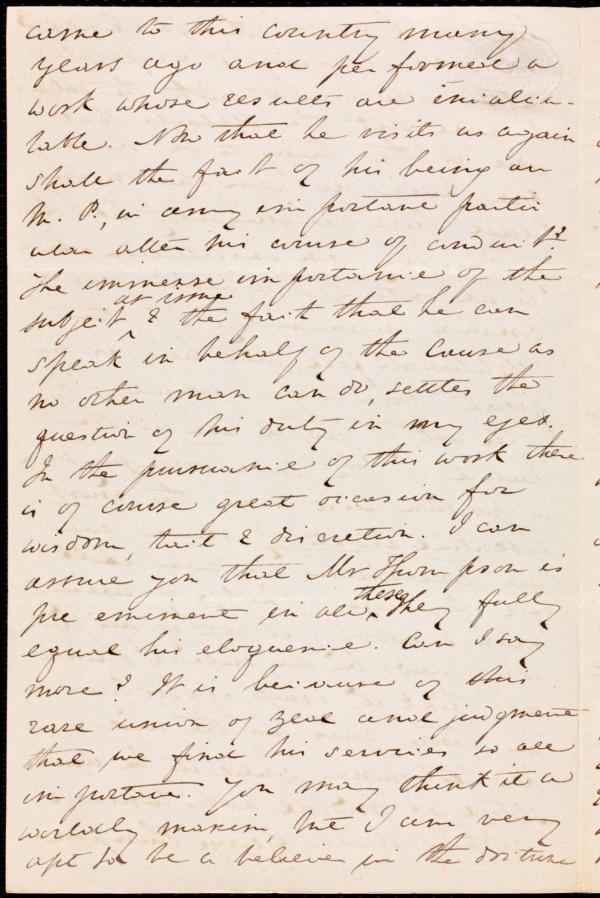 came to this country many
years ago and performed a
work whose results are incalcu-
lable. Now that he visits us again
shall the fact of his being an
M. P., in any important partic
ular alter his course of conduct?
The immense importance of the
at issue
subject & the fact that he can
speak in behalf of the cause as
no other man can do, settles the
question of his duty in my eyes.
In the pursuance of this work there
is of course great occasion for
wisdom, tact & discretion. I can
assure you that Mr Thompson is
pre eminent in all these. They fully
equal his eloquence. Can I say
more? It is because of this
rare union of zeal and judgment
that we find his services so all
important. You may think it a
worldly maxim, but I am very
apt to be a believer in the doctrine